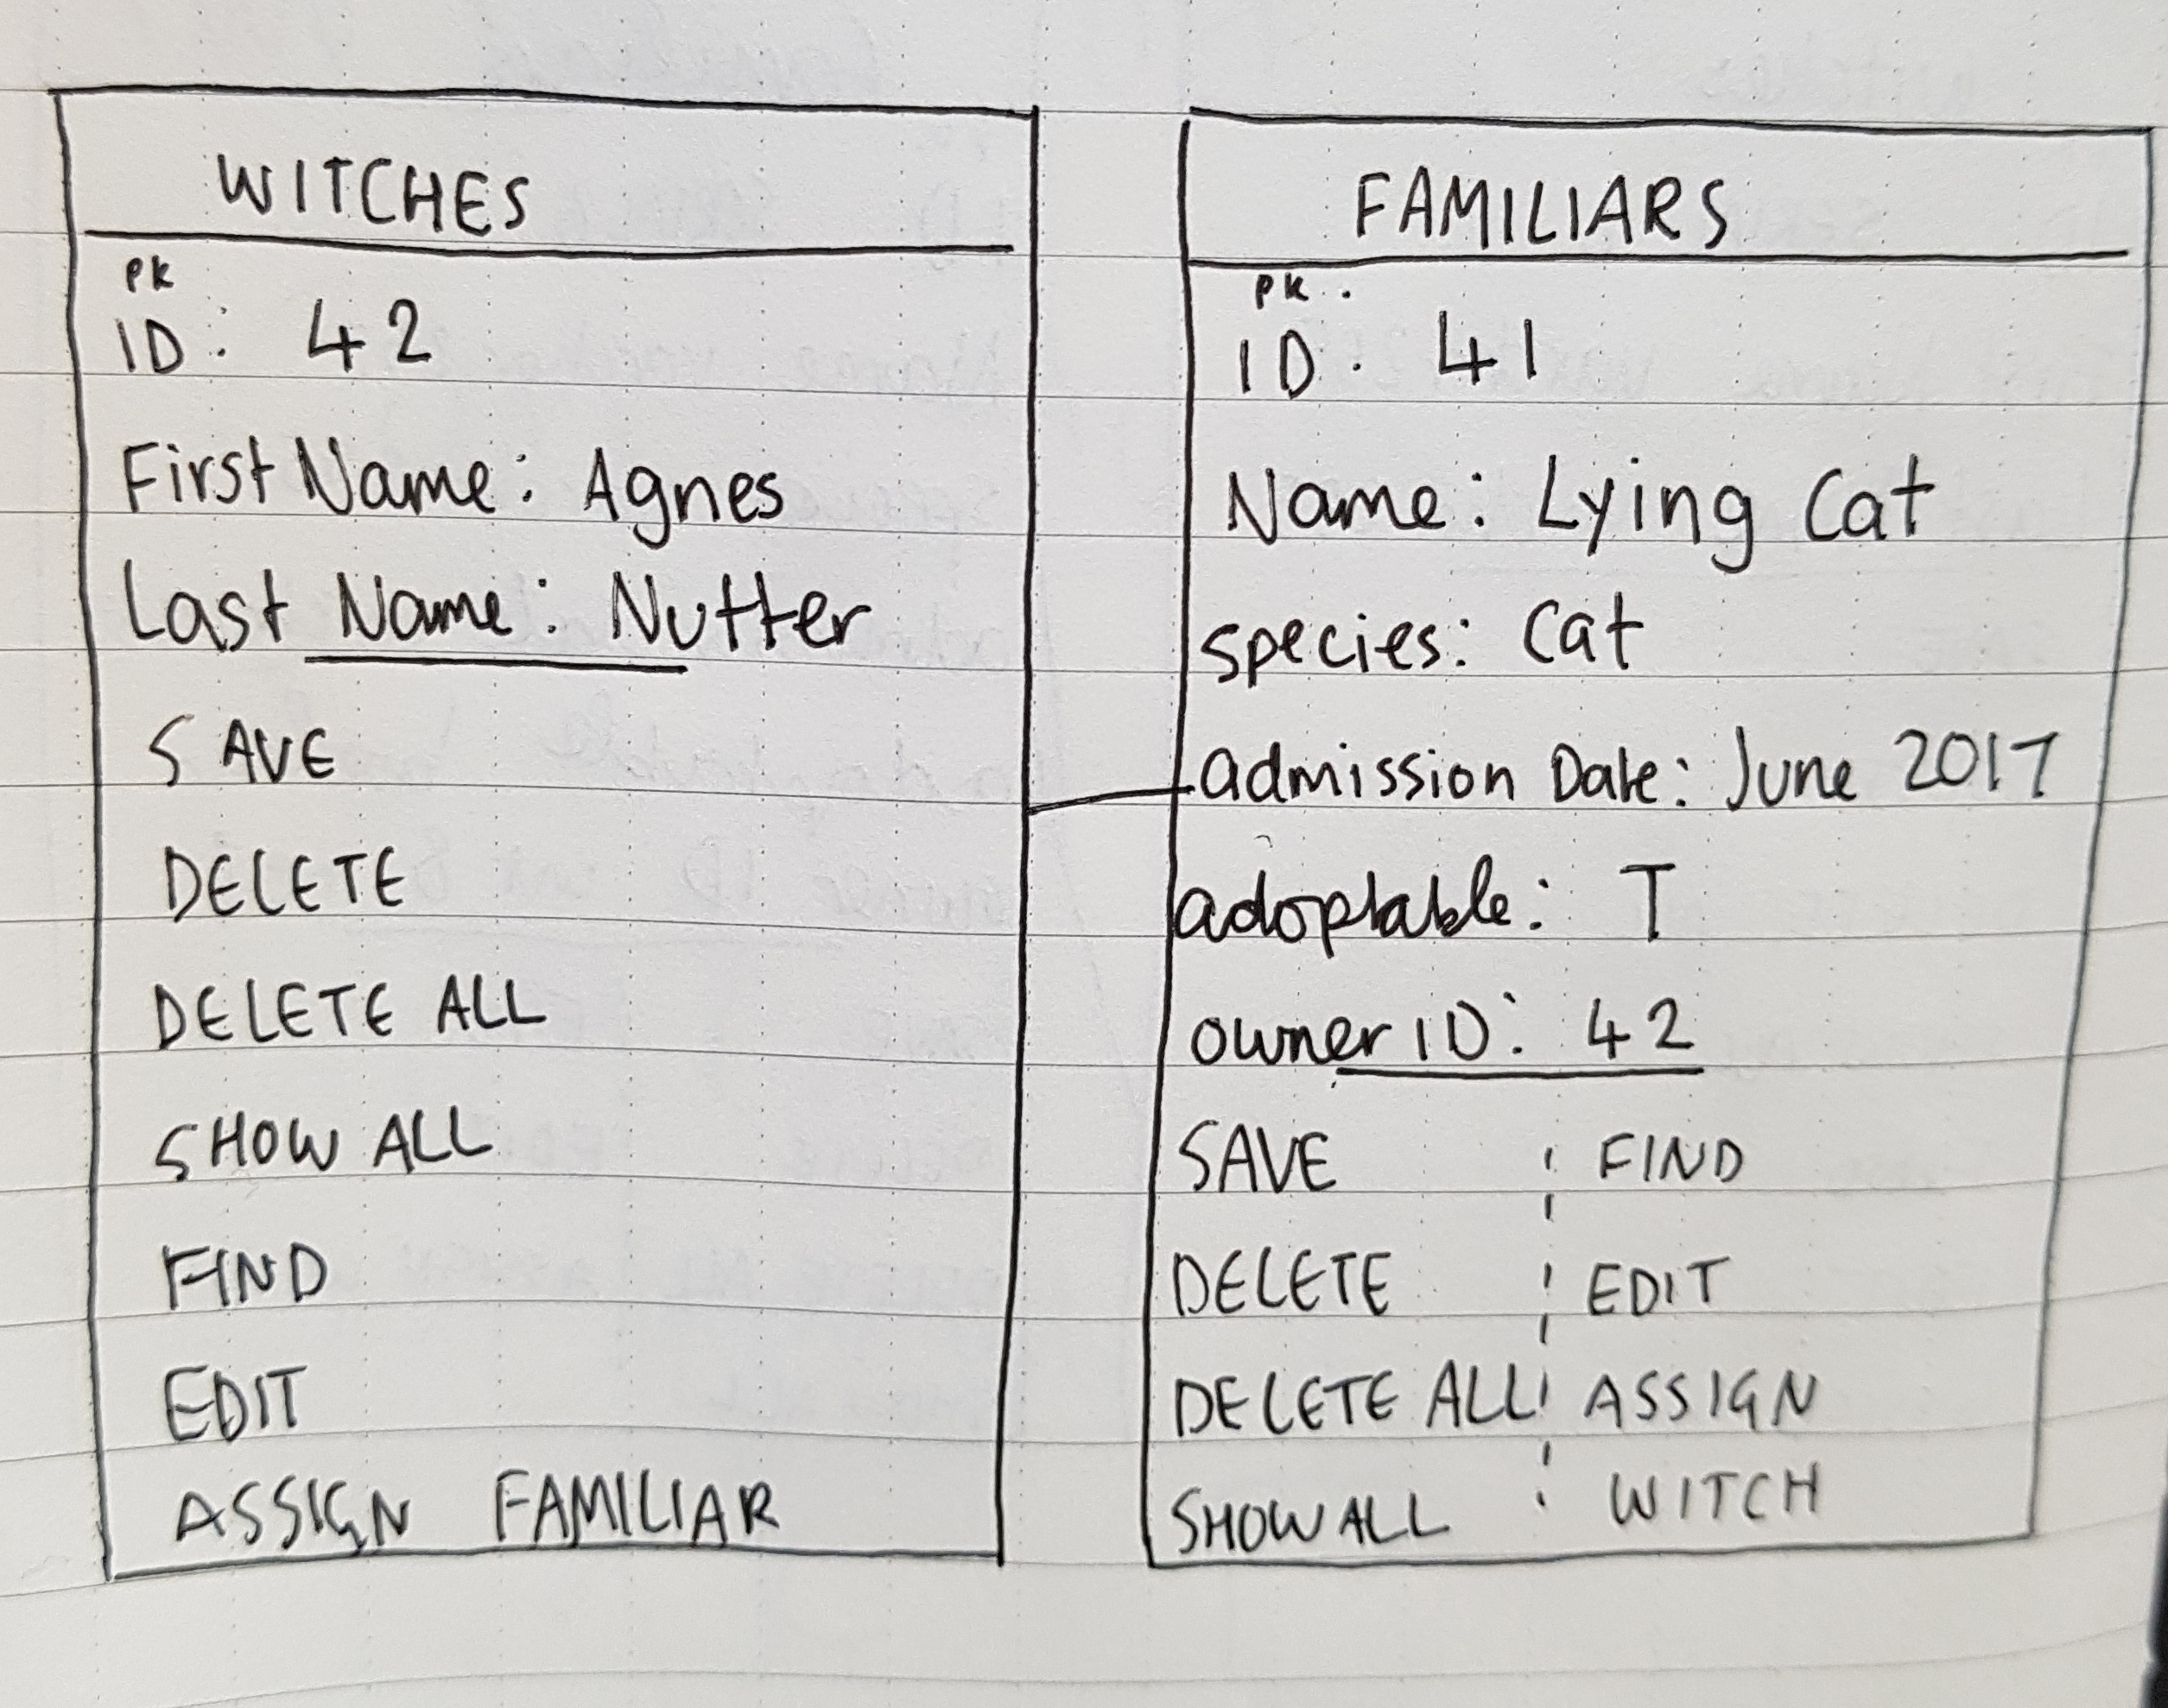 WITCHES
PK
ID: 42
First Name: Agnes
Last Name: Nutter
SAVE
DELETE
DELETE ALL
SHOW ALL
FIND
EDIT
ASSIGN FAMILIAR
FAMILIARS
PK.
ID. 41
Name: Lying Cat
species: Cat
admission Date: June 2017
adoptable: T
owner ID: 42
SAVE
DELETE
DELETE ALL
SHOW ALL
FIND
EDIT
ASSIGN
WITCH